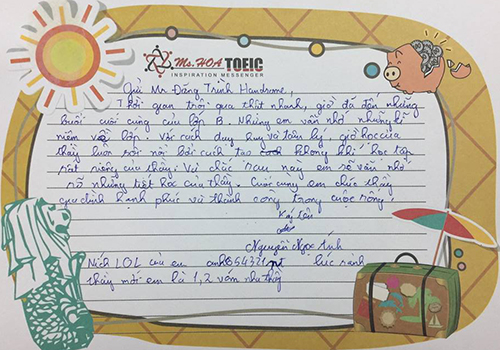 Ms. HOA TOEIC
INSPIRATION MESSENGER
Gửi Mr Đăng Trình Handsome,
Thời gian trôi qua thật nhanh, giờ đã đến những
buổi cuối cùng của lớp B. Nhưng em vẫn nhớ những kỉ
niệm với lớp. Với cách dạy huy và tâm lý, giờ học của
thầy luôn sôi nổi bởi cách tạo không khí học tập
rất riêng của thầy. Và chắc sau này em sẽ vẫn nhớ
rõ những tiết học của thầy. Cuối cùng em chúc thầy
gia đình hạnh phúc và thành công trong cuộc sống.
Ký tên
Nguyễn Ngọc Ánh
Nick LOL của em anh654321 lúc rảnh
thầy mời em là 1, 2 ván nha thầy